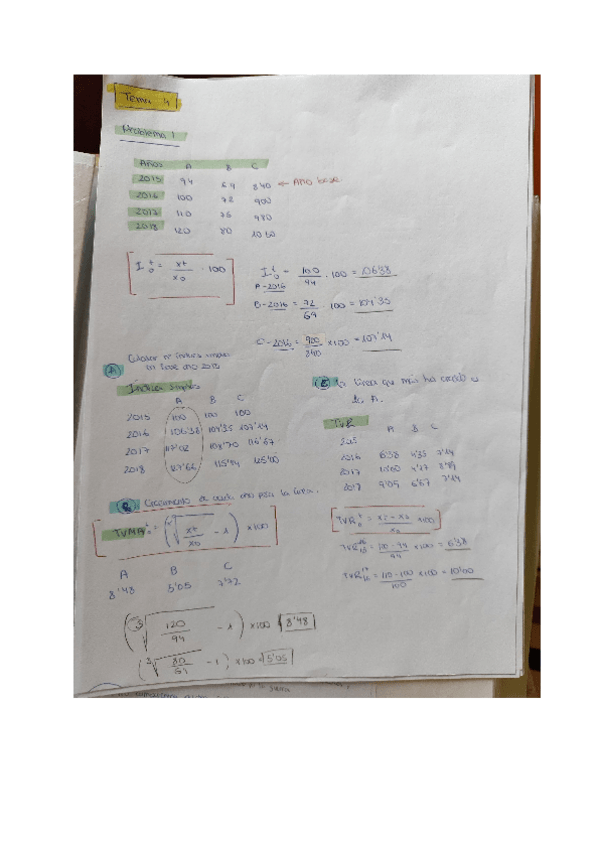 Tema 4
Problema 1
Años A B C
2015 94 69 840 ← Año base
2016 100 72 900
2017 110 75 980
2018 120 80 1050
I t 0 = xt / x0 · 100
I t 0 = 100 / 94 · 100 = 106'38
A-2016
B-2016 = 72 / 69 · 100 = 104'35
C-2016 = 900 / 840 x100 = 107'14
A Calcular nº índices simples
en base año 2015
Índices simples
A B C
2015 100 100 100
2016 106'38 104'35 107'14
2017 117'02 108'70 116'67
2018 127'66 115'94 125'00
C La línea que más ha crecido es
la A.
TVR
A B C
2015
2016 6'38 4'35 7'14
2017 10'00 4'17 8'89
2018 9'09 6'67 7'14
B Crecimiento de cada año para la línea.
TVMA t 0 = ( √ xt / x0 - 1 ) x100
A B C
8'48 5'05 7'72
( 3√ 120 / 94 - 1 ) x100 = 8'48
( 3√ 80 / 69 - 1 ) x100 = 5'05
TVR t 0 = xt - x0 / x0 x100
TVR 16 15 = 100 - 94 / 94 x100 = 6'38
TVR 17 16 = 110 - 100 / 100 x100 = 10'00